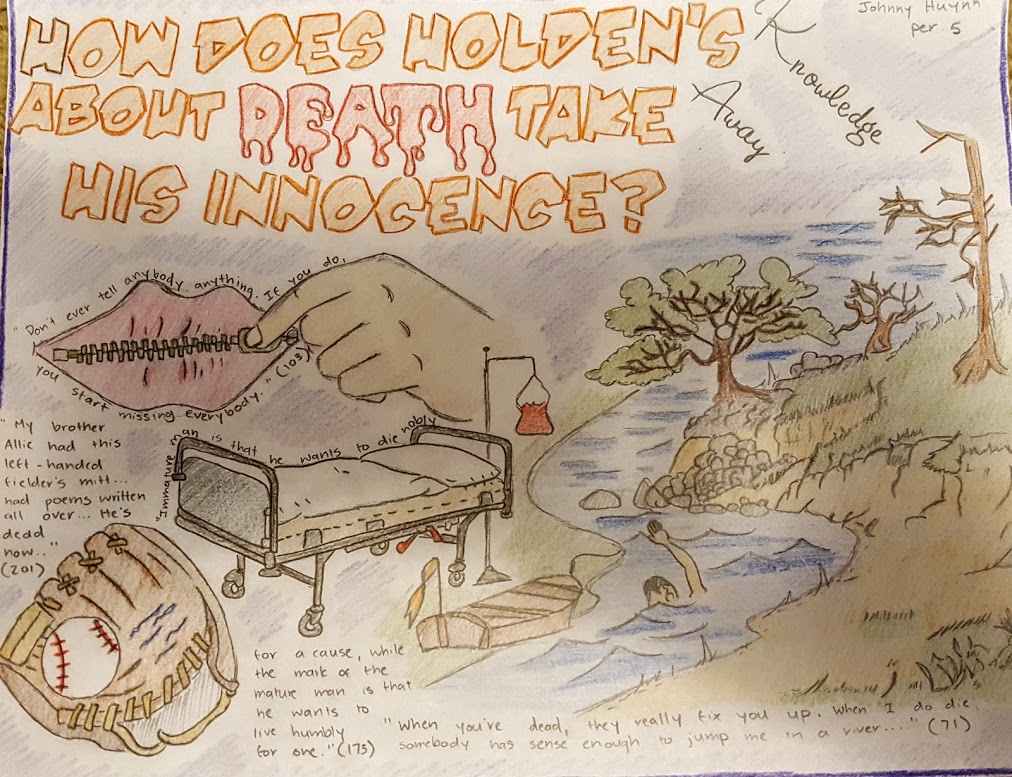 HOW DOES HOLDEN'S
ABOUT DEATH TAKE
HIS INNOCENCE?
Knowledge
Away
Johnny Huynh
per. 5
"Don't ever tell anybody anything. If you do,
you start missing everybody." (103)
"My brother
Allie had this
left-handed
fielder's mitt...
had poems written
all over... He's
dead
now.."
(201)
"Immature man is that he wants to die nobly
for a cause, while
the mark of the
mature man is that
he wants to
live humbly
for one." (173)
"When you're dead, they really fix you up. When I do die,
somebody has sense enough to jump me in a river...." (71)